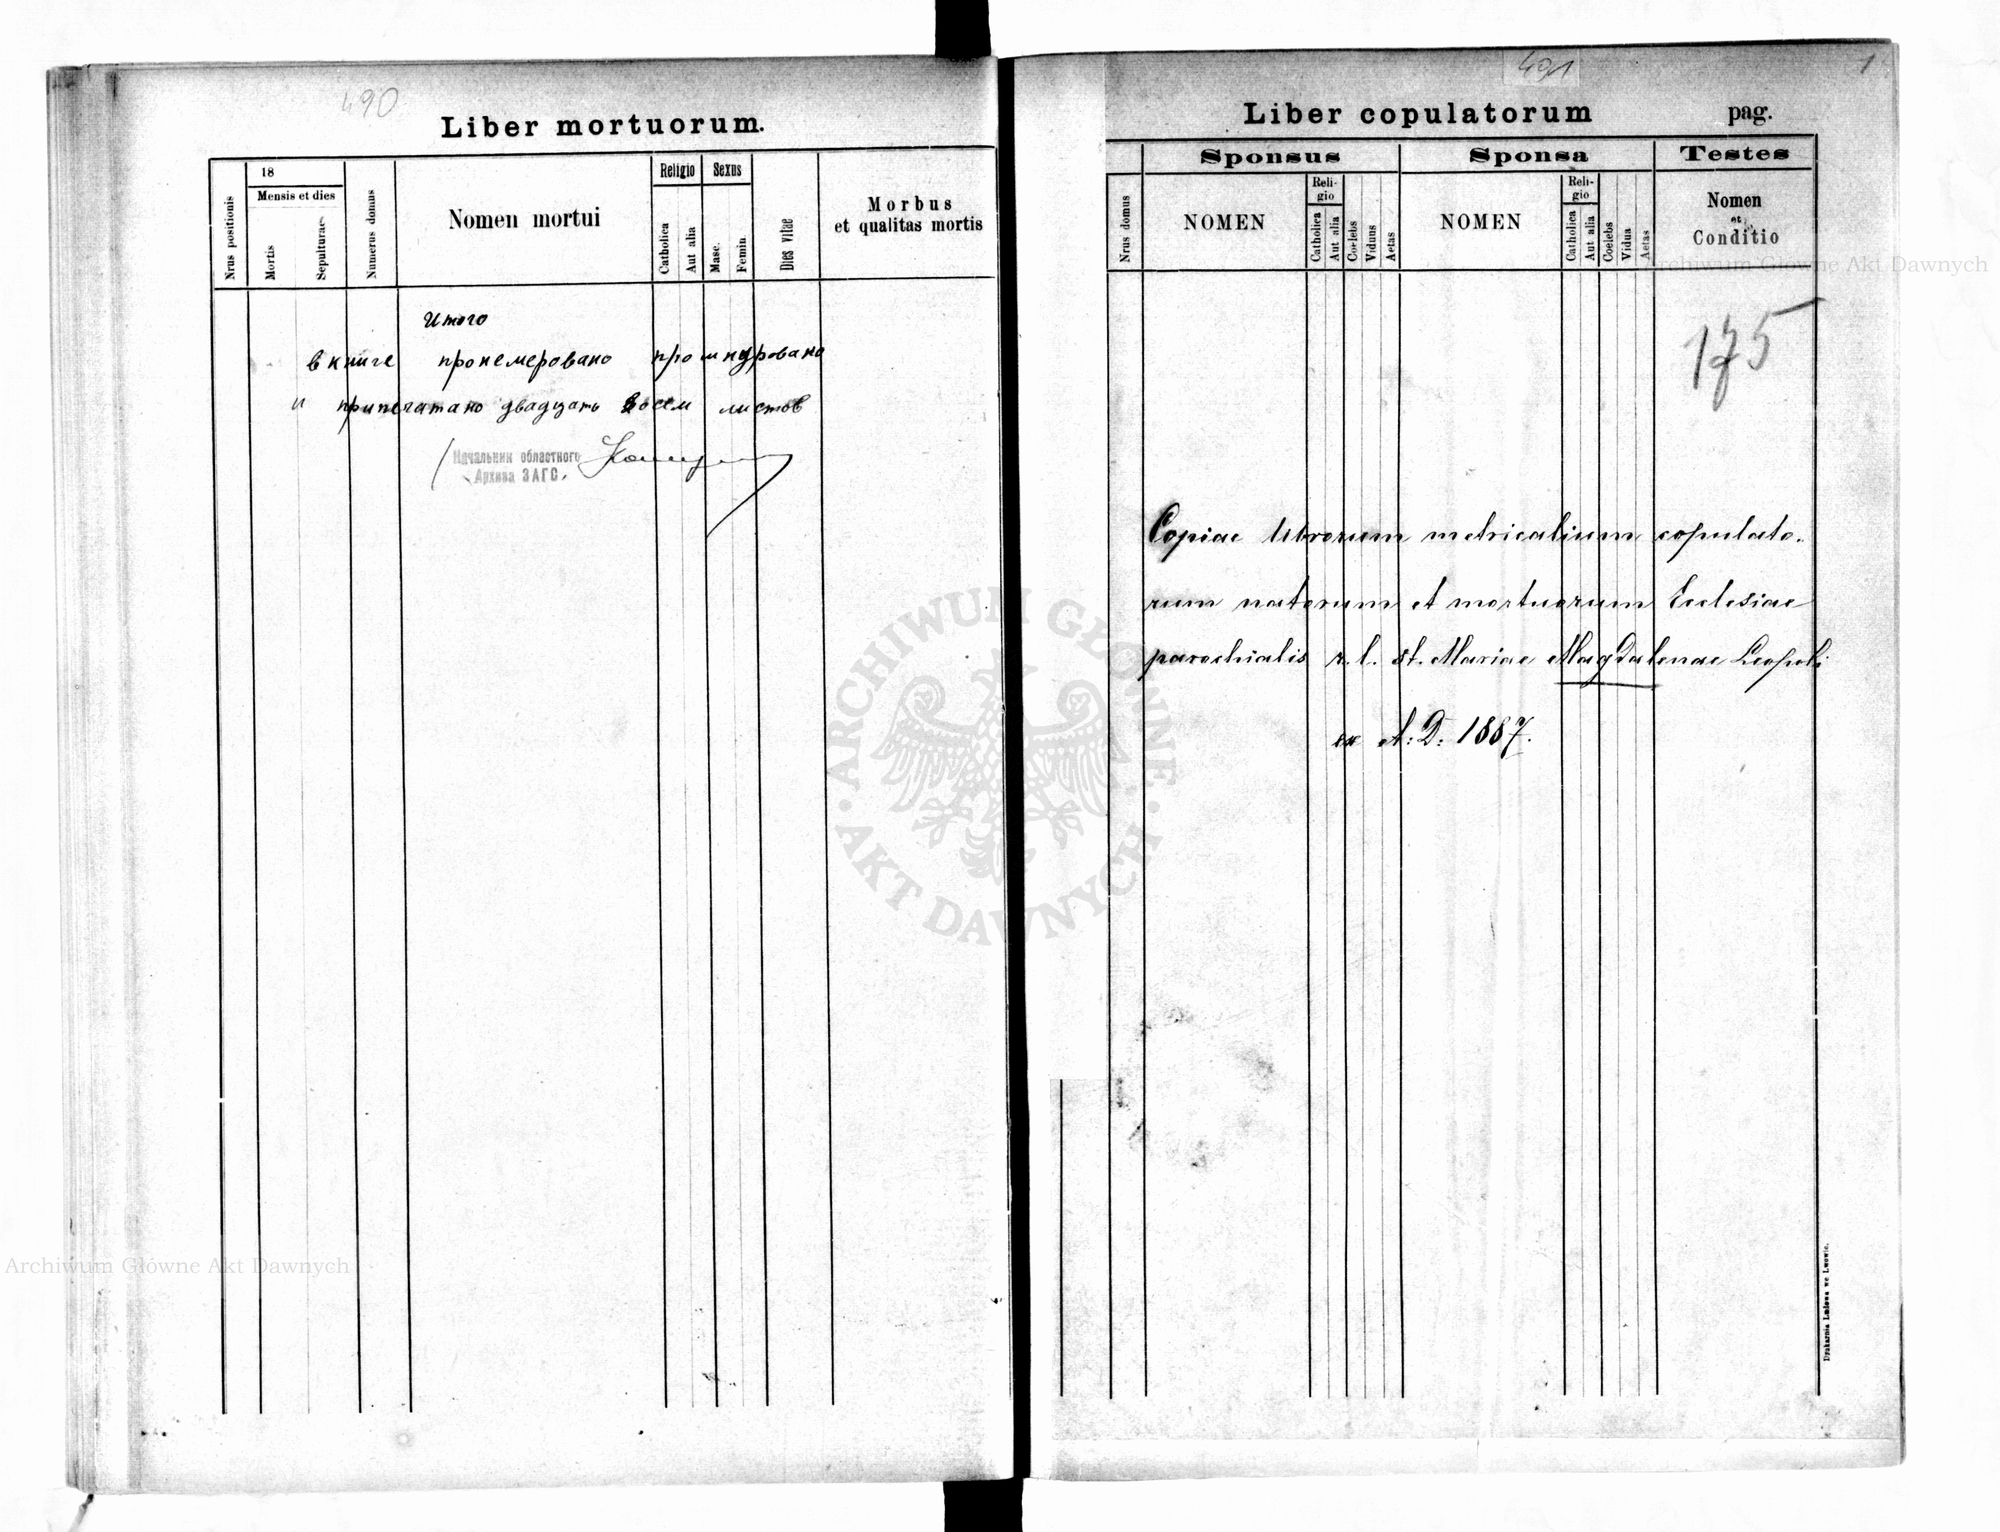 490
Liber mortuorum.
Nrus positionis
18
Mensis et dies
Mortis
Sepulturae
Numerus domus
Nomen mortui
Religio
Catholica
Aut alia
Sexus
Masc.
Femin
Dies vitae
Morbus
et qualitas mortis
Итого
в книге пронемеровано прошнуровано
и припечатано двадцать восем листов
Начальник областного
Архива ЗАГС.
491
1
Liber copulatorum pag.
Nrus domus
Sponsus
NOMEN
Reli-
gio
Catholica
Aut alia
Coelebs
Viduus
Aetas
Sponsa
NOMEN
Reli-
gio
Catholica
Aut alia
Coelebs
Vidua
Aetas
Testes
Nomen
et
Conditio
175
Copiae librorum metricalium copulato-
rum natorum et mortuorum Ecclesiae
parochialis r. l. st. Mariae Magdalenae Leopoli
ex A: D: 1887.
Drukarnia Ludowa we Lwowie.
Archiwum Główne Akt Dawnych
ARCHIWUM GŁÓWNE · AKT DAWNYCH ·
Archiwum Główne Akt Dawnych